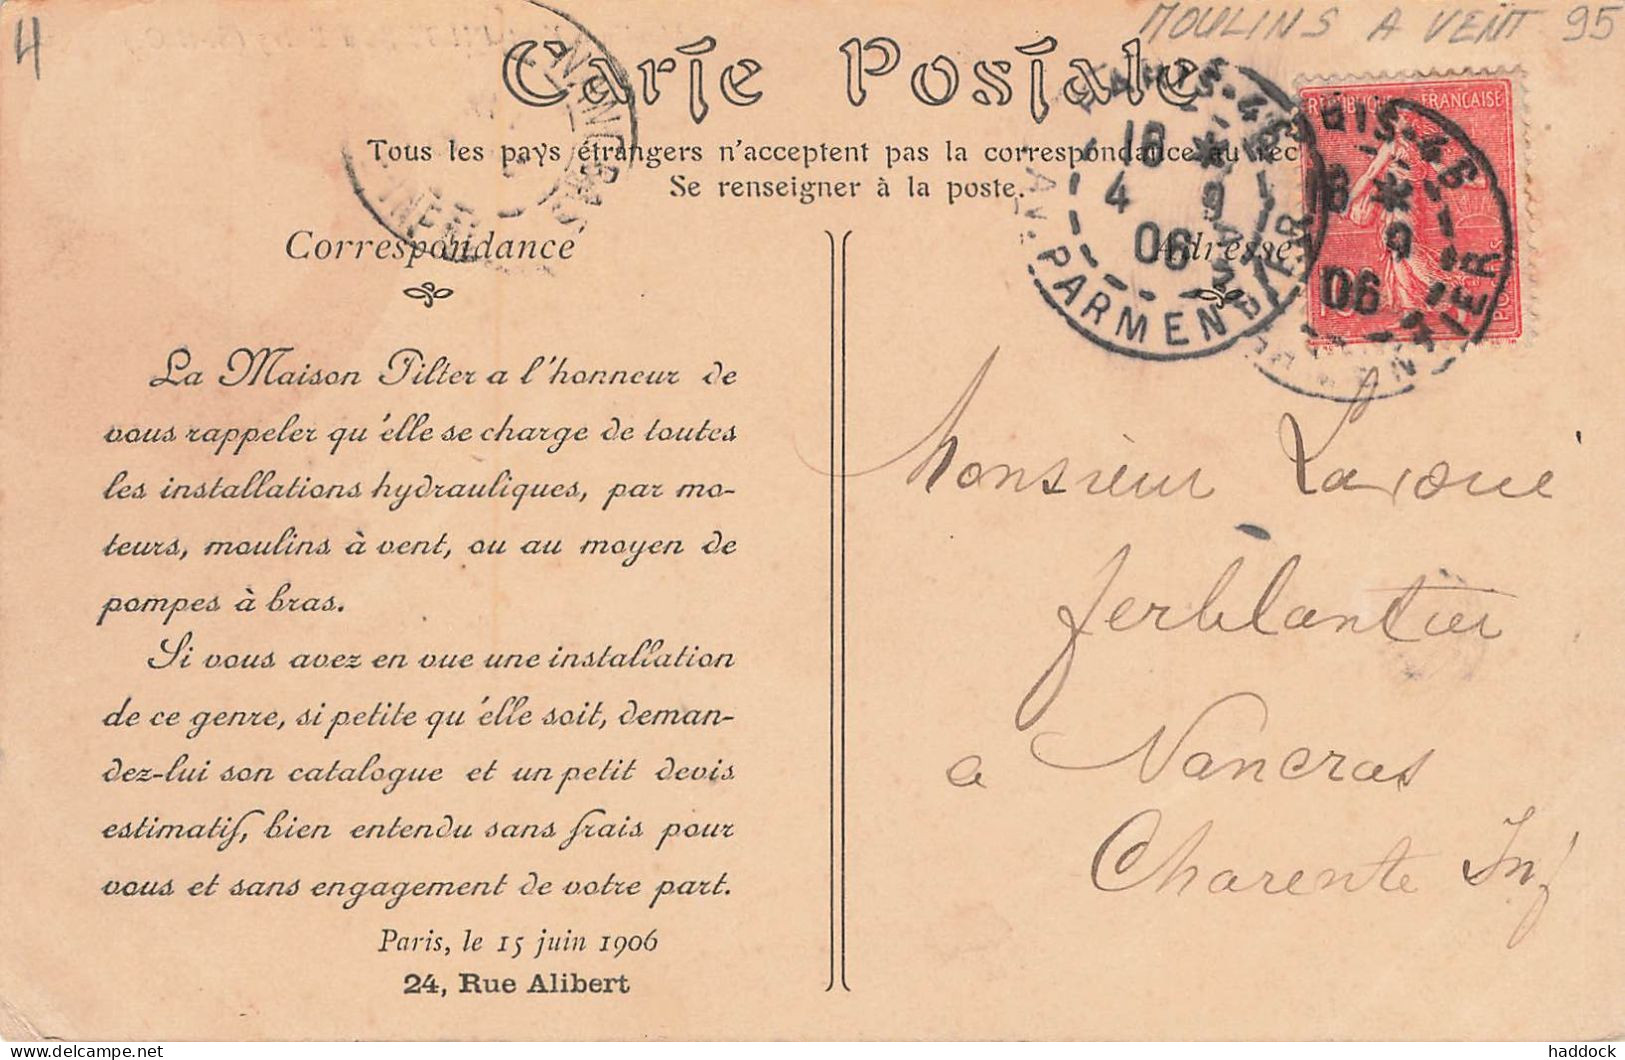 4
MOULINS A VENT 95
Carte Postale
Tous les pays étrangers n'acceptent pas la correspondance au rec
Se renseigner à la poste.
RÉPUBLIQUE FRANÇAISE
18 * 4 9 06
AV. PARMENTIER
18 * 9 06
Correspondance
Adresse
La Maison Pilter a l'honneur de
vous rappeler qu'elle se charge de toutes
les installations hydrauliques, par mo-
teurs, moulins à vent, ou au moyen de
pompes à bras.
Si vous avez en vue une installation
de ce genre, si petite qu'elle soit, deman-
dez-lui son catalogue et un petit devis
estimatif, bien entendu sans frais pour
vous et sans engagement de votre part.
Paris, le 15 juin 1906
24, Rue Alibert
Monsieur
ferblantier
a Nancras
Charente Inf
haddock